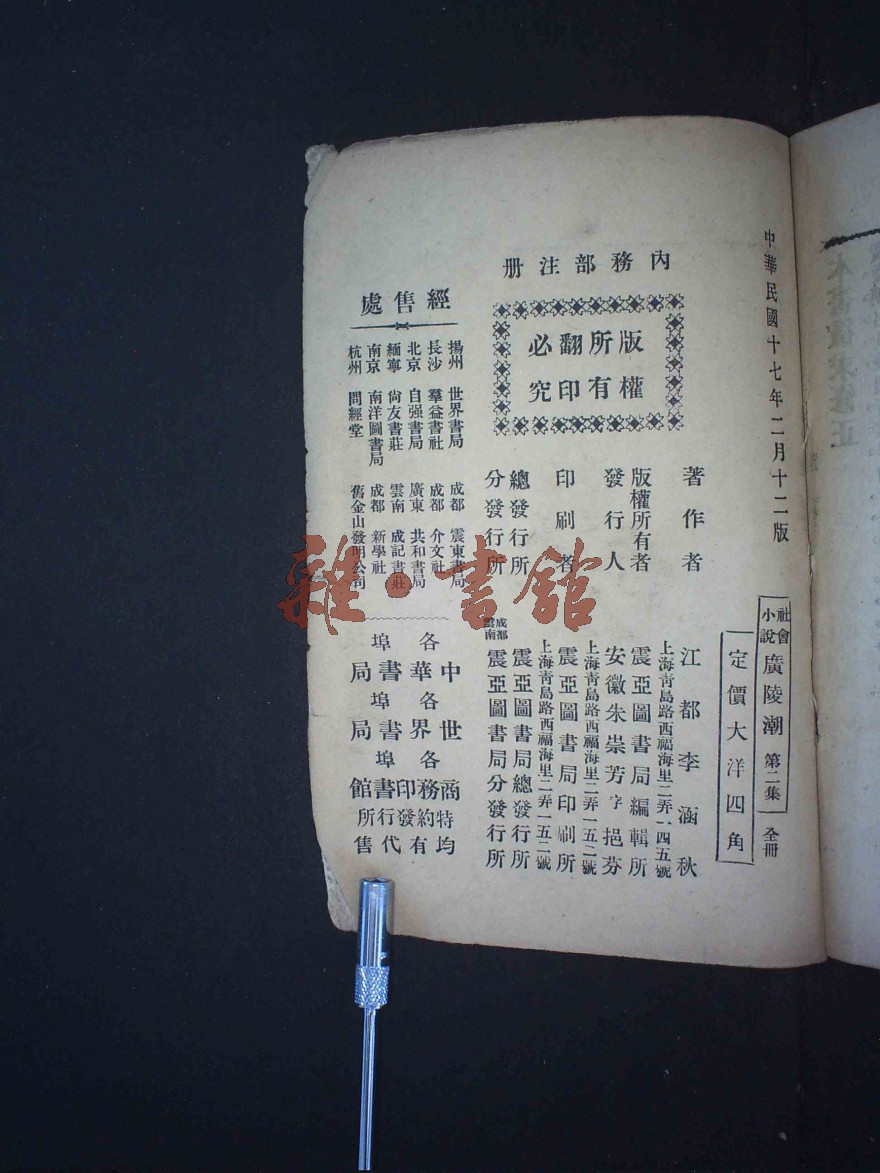 中華民國十七年二月十二版
社會小說 廣陵潮 第二集 全冊
定價大洋四角
內務部注册
版權所有
翻印必究
著作者 江都李涵秋
版權所有者 上海靑島路西福海里二弄一四五號
震亞圖書局編輯所
發行人 安徽朱崇芳字挹芬
印刷者 上海靑島路西福海里二弄一五二號
震亞圖書局印刷所
總發行所 上海靑島路西福海里二弄一五二號
震亞圖書局總發行所
分發行所 成都雲南 震亞圖書局分發行所
經售處
揚州 世界書局 成都 震東書局
長沙 羣益書社 成都 介文社
北京 自强書局 廣東 共和書局
緬寧 尙友書莊 雲南 成記書莊
南京 南洋圖書局 成都 新學社
杭州 問經堂 舊金山發明公司
各埠
中華書局
各埠
世界書局
各埠
商務印書館
特約發行所
均有代售
雜·書館